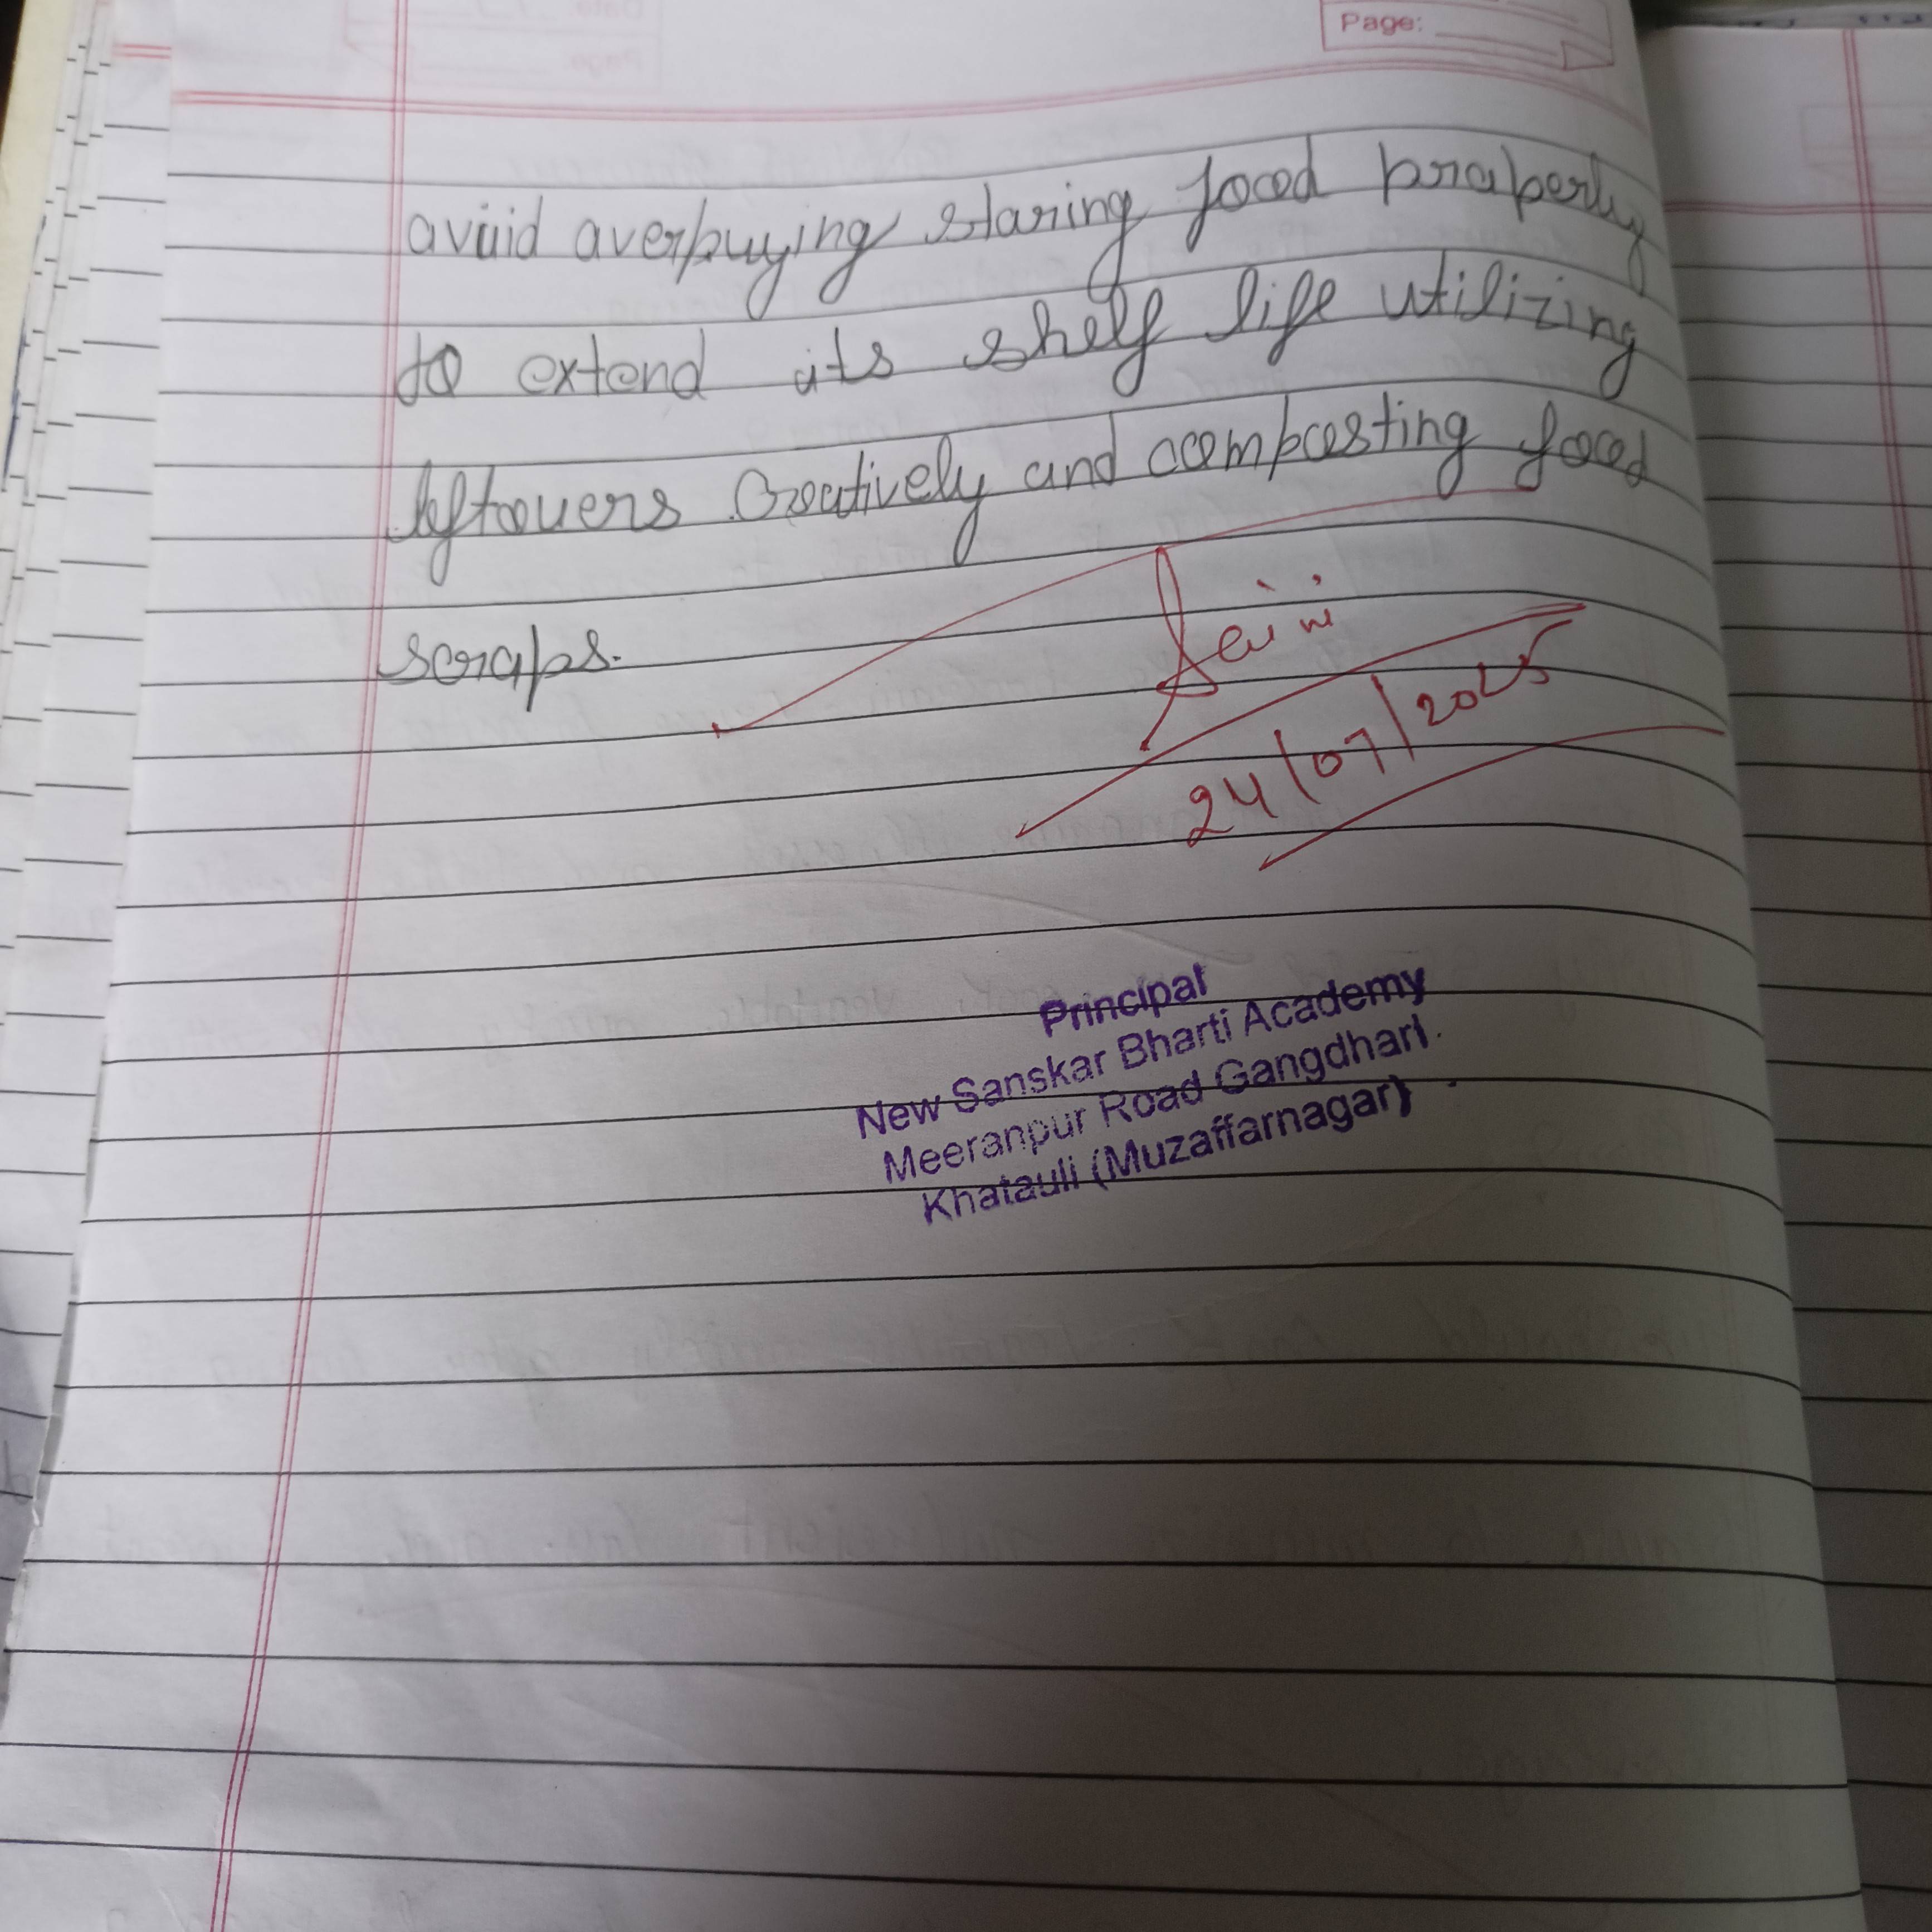 Page:
avoid overbuying storing food properly
to extend its shelf life utilizing
leftovers creatively and composting food
scraps.
Saini
24/07/2025
Principal
New Sanskar Bharti Academy
Meeranpur Road Gangdhari
Khatauli (Muzaffarnagar)